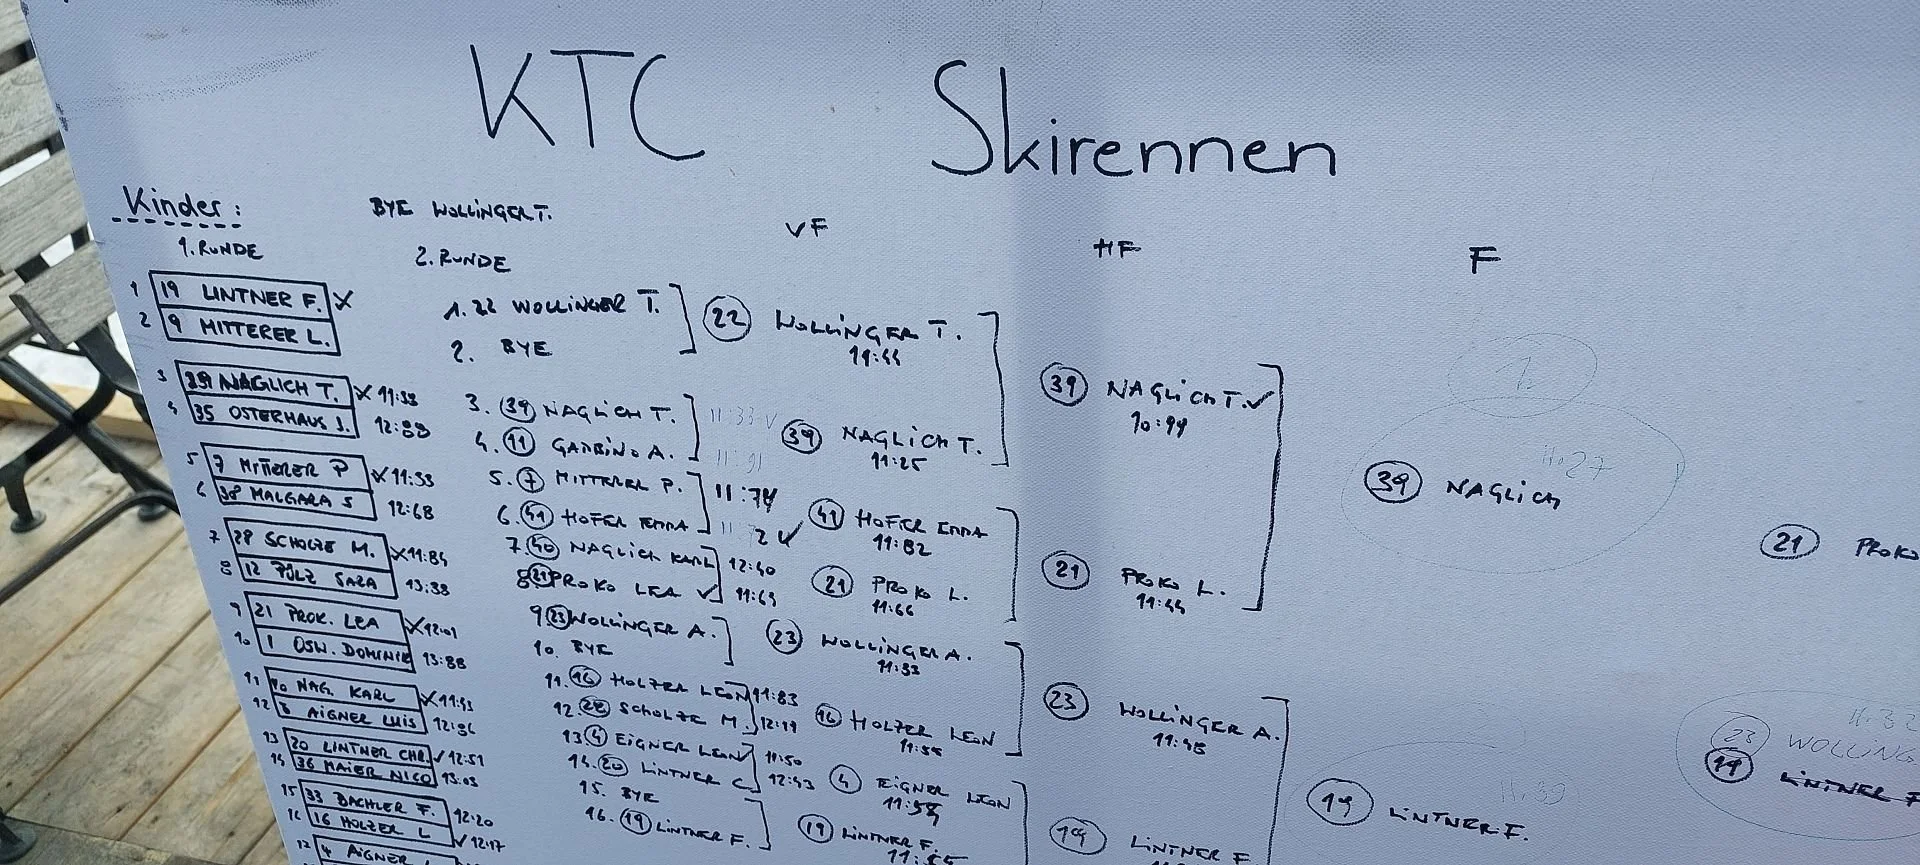 KTC Skirennen
Kinder:
1. RUNDE
1 19 LINTNER F. X
2 9 MITTERER L.
3 39 NAGLICH T. X 11:33
4 35 OSTERHAUS J. 12:88
5 7 MITTERER P X 11:33
6 38 MALGARA S 12:68
7 28 SCHOLZE M. X 11:84
8 12 PÖLZ SARA 13:38
9 21 PROK. LEA X 12:01
10 1 OSW. DOMINIK 13:88
11 40 NAG. KARL X 11:93
12 AIGNER LUIS 12:96
13 20 LINTNER CHR. ✓ 12:51
14 36 MAIER NICO 13:03
15 33 BACHLER F. 12:20
16 16 HOLZER L ✓ 12:17
4 AIGNER
BYE WOLLINGER T.
2. RUNDE
1. 22 WOLLINGER T.
2. BYE
3. 39 NAGLICH T. 11:33 ✓
4. 11 GARBINO A. 11:91
5. 7 MITTERER P. 11:74
6. 41 HOFER EMMA
7. 40 NAGLICH KARL 12:40
8. 21 PROKO LEA ✓ 11:69
9 23 WOLLINGER A.
10. BYE
11. 16 HOLZER LEON 11:83
12. 28 SCHOLZE M. 12:19
13 4 EIGNER LEON 11:50
14. 20 LINTNER C. 12:43
15. BYE
16. 19 LINTNER F.
VF
22 WOLLINGER T.
11:44
39 NAGLICH T.
11:25
41 HOFER EMMA
11:82
21 PROKO L.
11:66
23 WOLLINGER A.
11:33
16 HOLZER LEON
11:54
4 EIGNER LEON
19 LINTNER F.
HF
39 NAGLICH T. ✓
10:99
21 PROKO L.
11:44
23 WOLLINGER A.
11:48
19 LINTNER F
F
11.27
39 NAGLICH
11.39
19 LINTNER F.
21 PROKO
11.32
23 WOLLING
19 LINTNER F